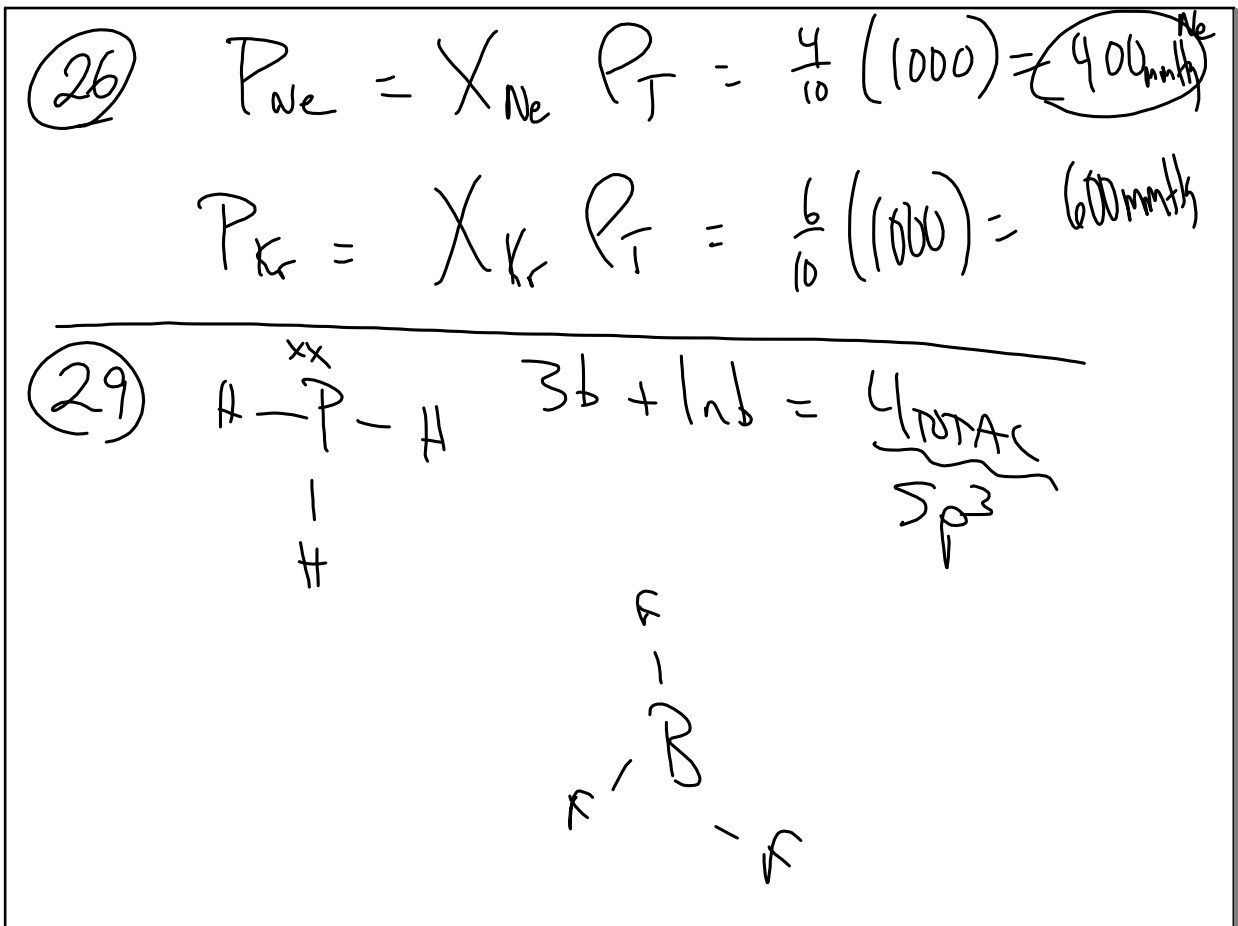 26 P_Ne = X_Ne P_T = 4/10 (1000) = 400 mmHg Ne
P_Kr = X_Kr P_T = 6/10 (1000) = 600 mmHg
29 H—P—H 3b + 1nb = 4 TOTAL
xx
H
sp³
F
B
F
F